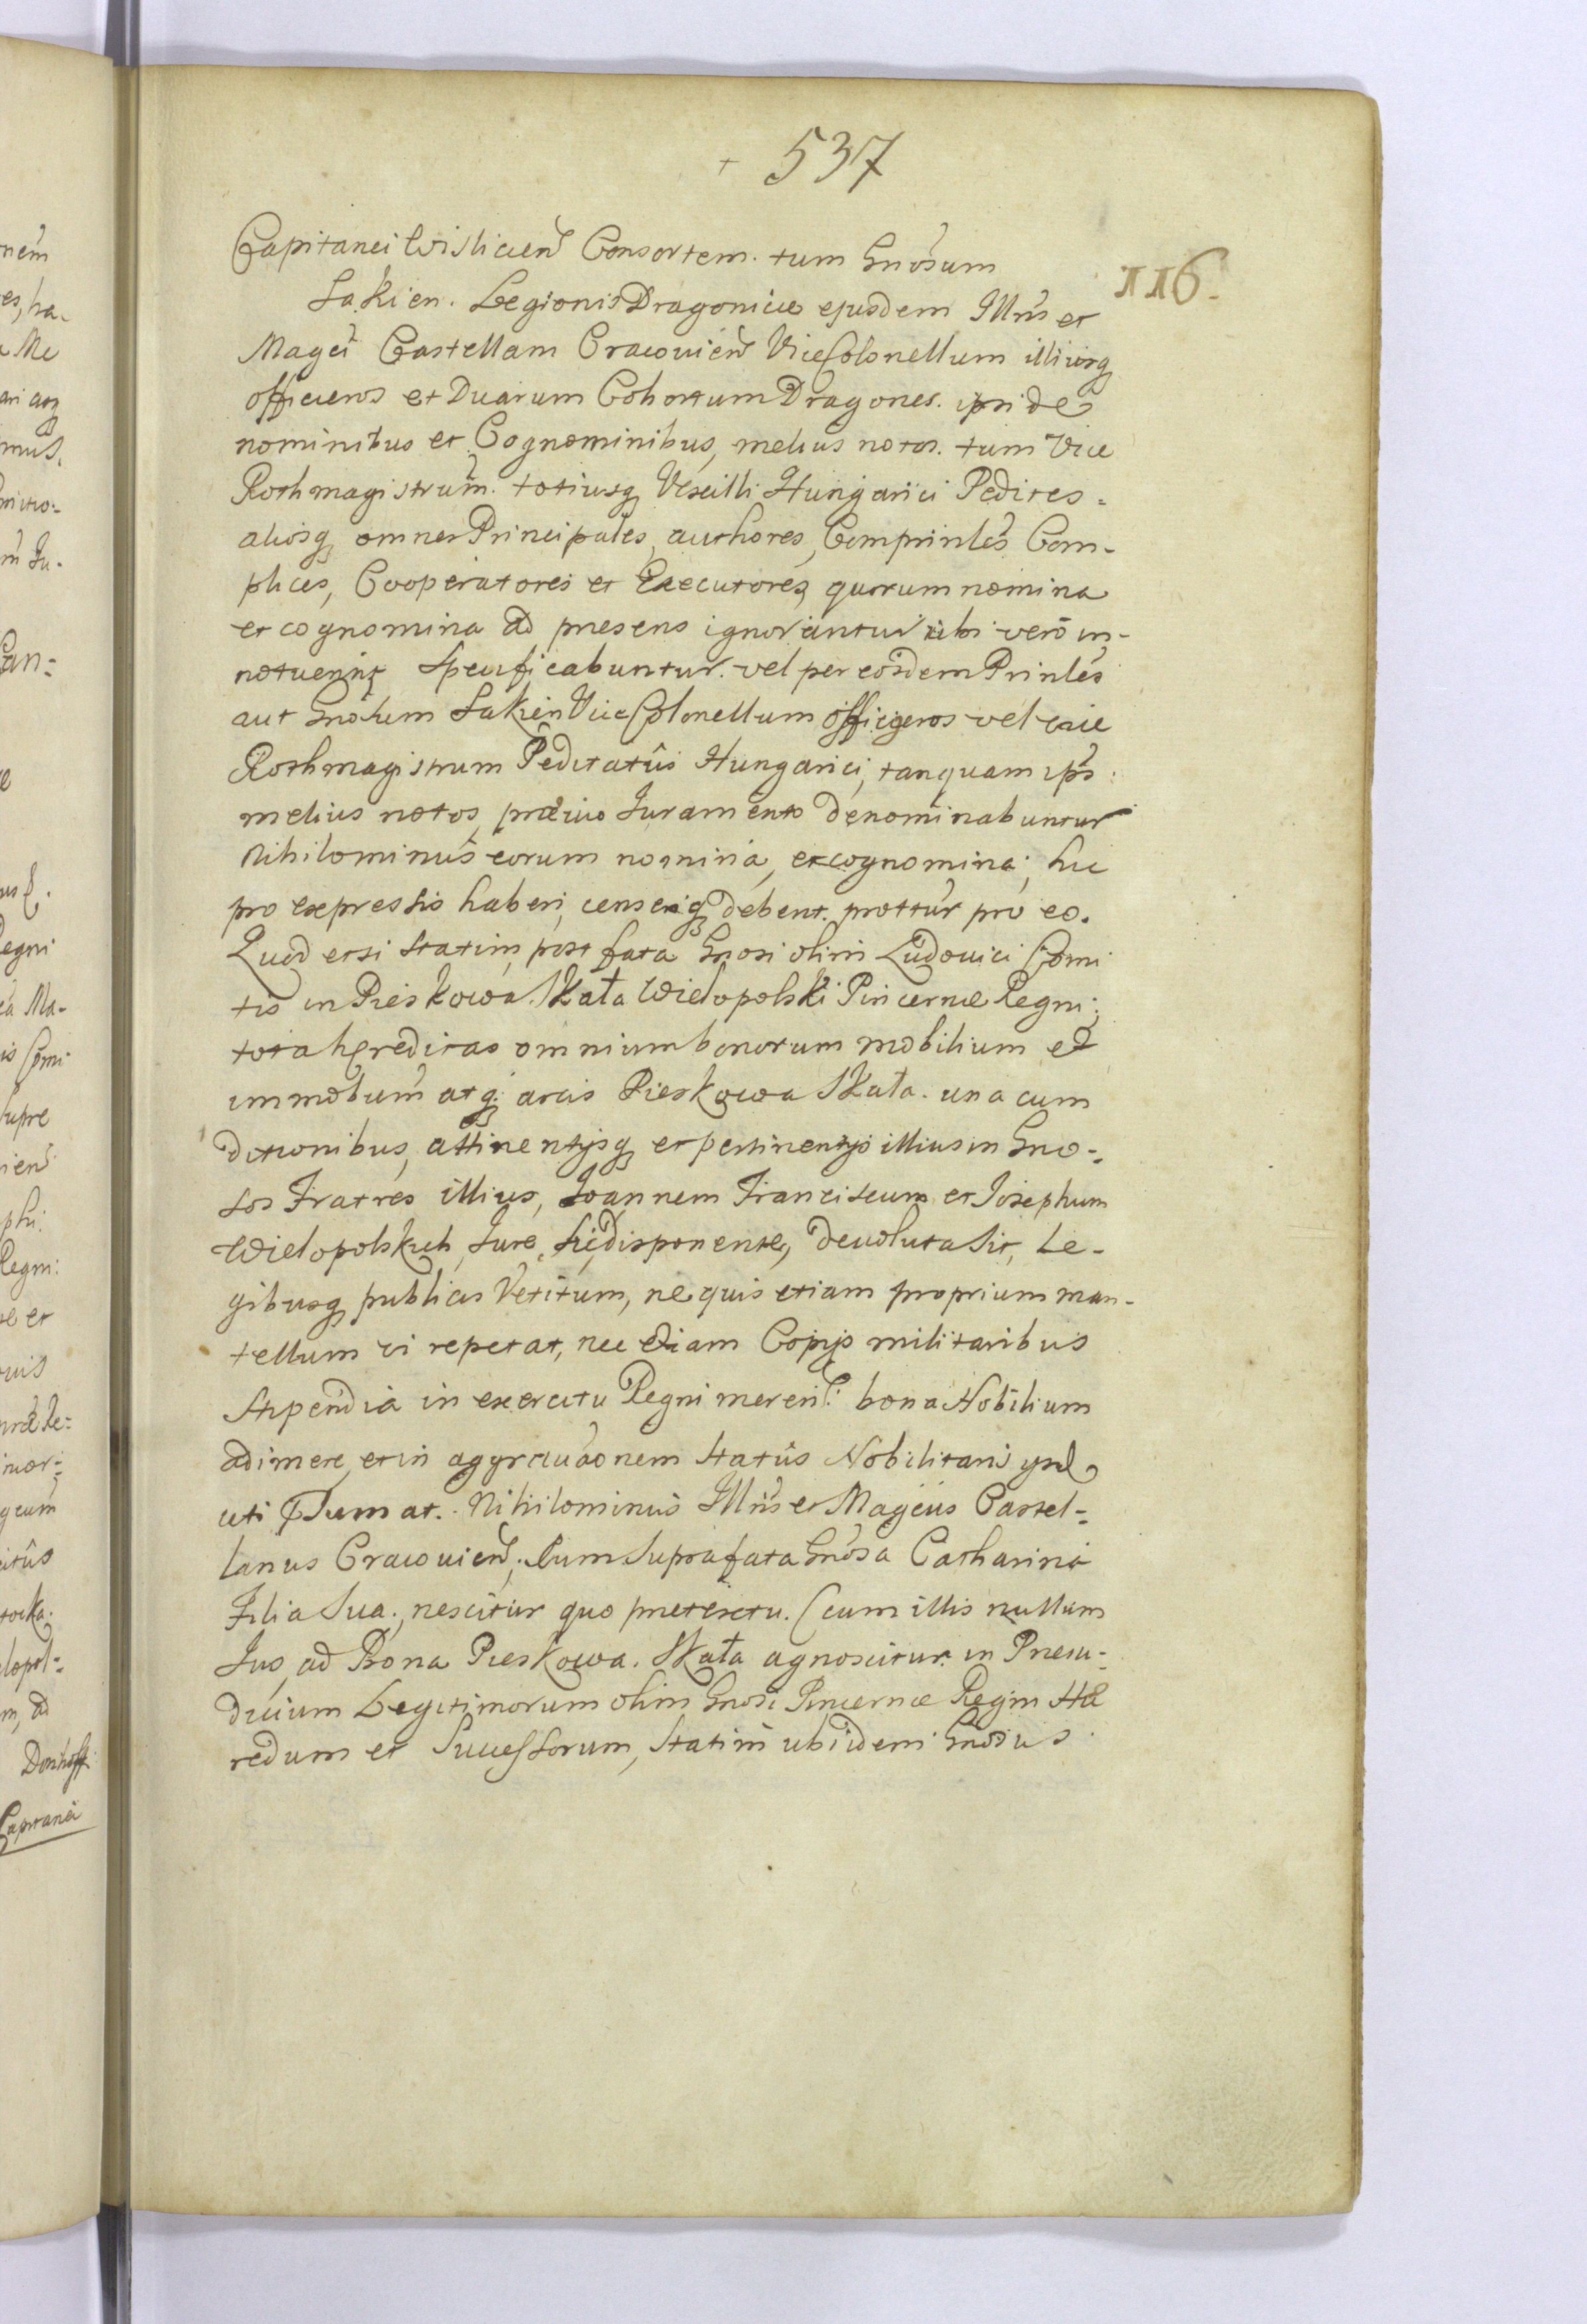 + 537
116.
Capitanei Wisliciens Consortem. tum Gnosum
Sakien. Legionis Dragonicæ ejusdem Illris et
Magci Castellani Cracovien ViceColonellum illiusq
officieros et Duarum Cohortum Dragones. ipsi de
nominibus et Cognominibus, melius notos. tum Vice
Rothmagistrum. totiusq Vexilli Hungarici Pedites.
aliosq omnes Principales, authores, Comprinles Com-
plices, Cooperatores et Executores, quorum nomina
et cognomina ad præsens ignorantur ubi vero in-
notuerint specificabuntur. vel per eosdem Prinles
aut Gnosum Sakien ViceColonellum officieros vel vice
Rothmagistrum Peditatûs Hungarici, tanquam ips
melius notos, prævio Juramento denominabuntur
Nihilominus eorum nomina, et cognomina; hic
pro expressis haberi, censeriq debent. prottur pro eo.
Quod etsi statim, post fata Gnosi olim Ludovici Comi
tis in Pieskowa Skała Wielopolski Pincernæ Regni;
tota hæreditas omnium bonorum mobilium et
immobum atq; arcis Pieskowa Skała. una cum
ditionibus, attinentijsq et pertinentijs illius in Gno-
sos Fratres illius, Joannem Franciscum et Josephum
Wielopolskich, Jure, sic disponente, devoluta sit, Le-
gibusq publicis Vetitum, ne quis etiam proprium man-
tellum vi repetat, nec etiam Copijs militaribus
stipendia in exercitu Regni meren: bona Nobilium
adimere, et in aggravaonem statûs Nobilitaris
uti præsumat. Nihilominus Illris et Magcus Castel-
lanus Cracovien, cum suprafata Gnosa Catharina
Filia sua, nescitur quo prætextu. (cum illis nullum
Jus, ad Bona Pieskowa. Skała agnoscitur. in Præju-
dicium Legitimorum olim Gnosi Pincernæ Regni Hæ
redum et Successorum, statim ubi idem Gnosus